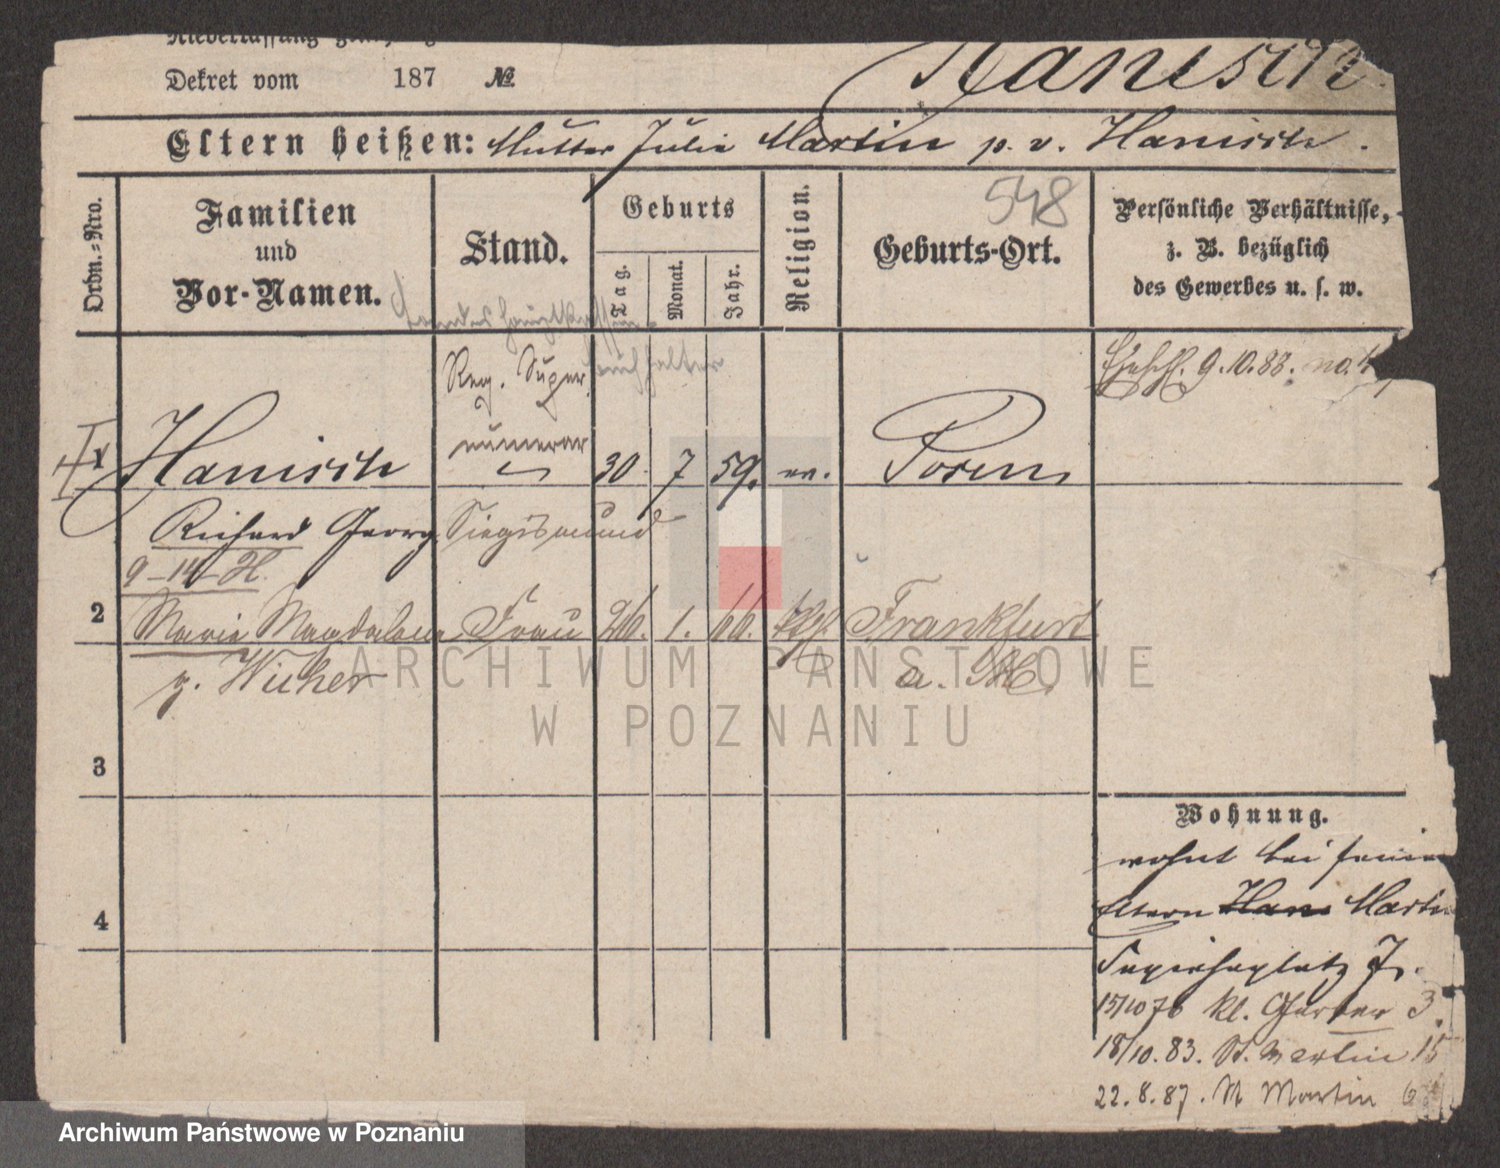 Dekret vom 187 №
Hanisch
Eltern heißen: Mutter Julie Martin p. v. Hanisch.
548
Ordn.-Nro.
Familien
und
Vor-Namen.
Stand.
Geburts
Tag.
Monat.
Jahr.
Religion.
Geburts-Ort.
Persönliche Verhältnisse,
z. B. bezüglich
des Gewerbes u. s. w.
buchhalter
Reg. Super
numerar
9.10.83. no.
1 Hanisch 30. 7 59. ev. Posen
Richard Georg Siegismund
9-14-H.
2 Maria Magdalena Frau 26. 1. 66. kth. Frankfurt
g. Wicher a. M.
3
4
Wohnung.
wohnt bei seinen
Eltern Hans Martin
Sapiehaplatz 7.
15/10 76 kl. Gerber 3.
18/10.83. St. Martin 15
22.8.87. St Martin 6
ARCHIWUM PAŃSTWOWE
W POZNANIU
Archiwum Państwowe w Poznaniu